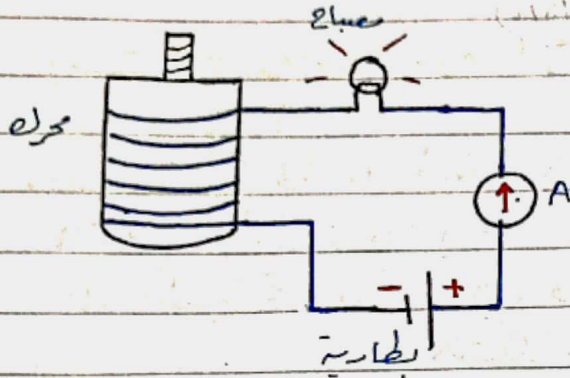 مصباح
محرك
A
- +
بطارية